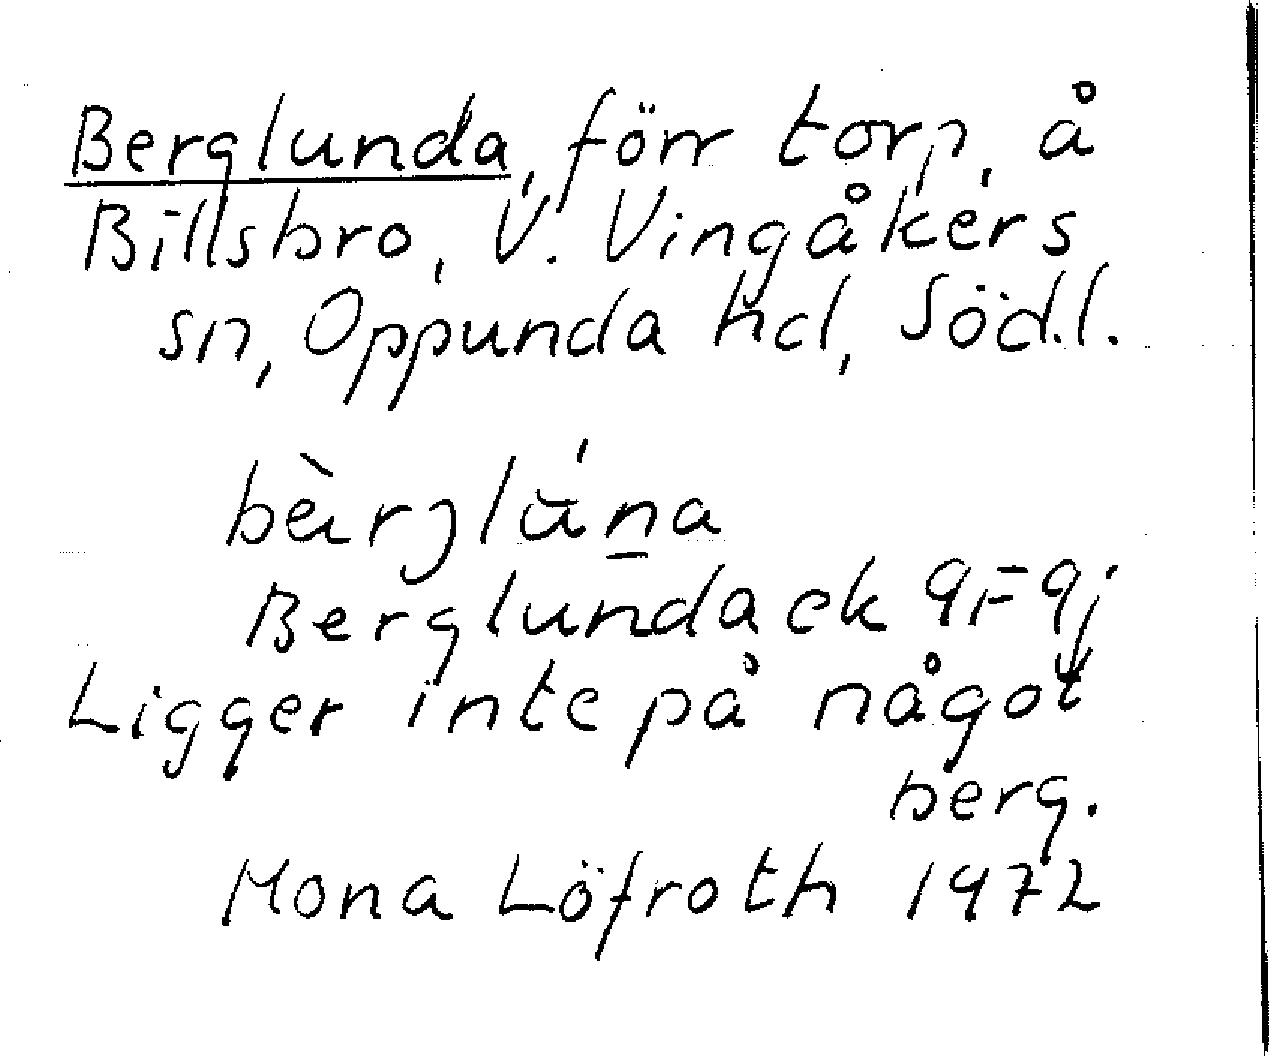 Berglunda, förr torp, å
Billsbro, V. Vingåkers
sn, Oppunda hd, Södl.
bèrglúna
Berglunda ek 9i=9j
Ligger inte på något
berg.
Mona Löfroth 1972